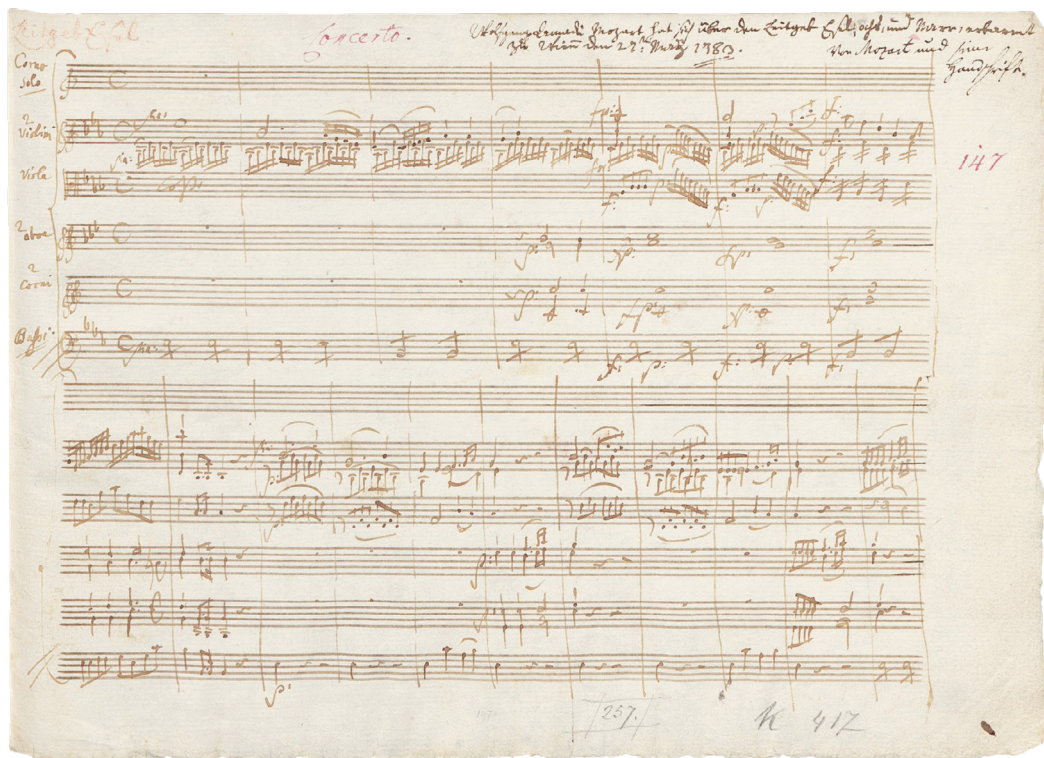 Leitgeb Esel
Concerto.
Wolfgang Amadé Mozart hat sich über den Leitgeb Esel, ochs, und Narr, erbarmt
zu Wien den 27: May 1783.
Von Mozart und seine
Handschrift.
Corno
Solo
2
Violini
Viola
2
oboe
2
Corni
Bassi
147
257.
K 417